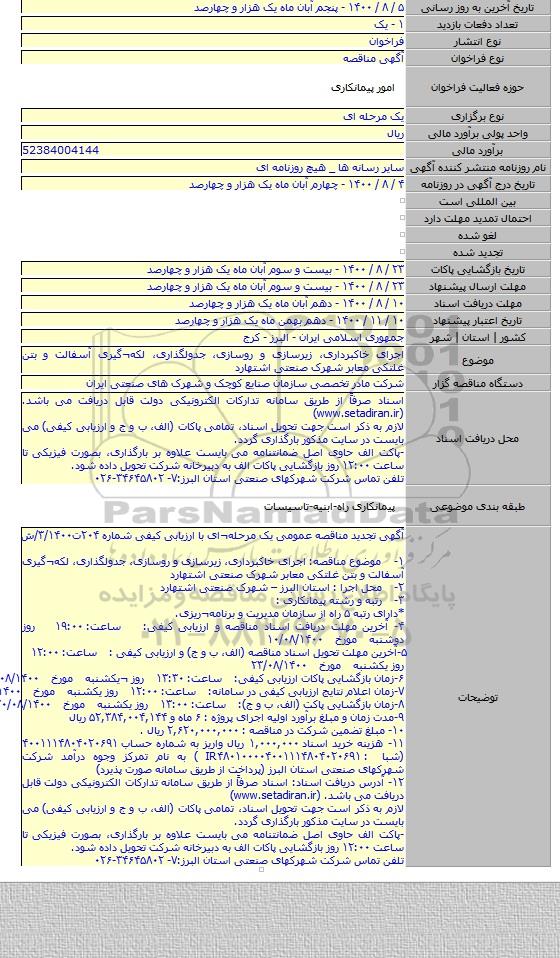 تاریخ آخرین به روز رسانی ۵ / ۸ / ۱۴۰۰ - پنجم آبان ماه یک هزار و چهارصد
تعداد دفعات بازدید ۱ - یک
نوع انتشار فراخوان
نوع فراخوان آگهی مناقصه
حوزه فعالیت فراخوان امور پیمانکاری
نوع برگزاری یک مرحله ای
واحد پولی برآورد مالی ریال
برآورد مالی 52384004144
نام روزنامه منتشر کننده آگهی سایر رسانه ها _ هیچ روزنامه ای
تاریخ درج آگهی در روزنامه ۴ / ۸ / ۱۴۰۰ - چهارم آبان ماه یک هزار و چهارصد
بین المللی است
احتمال تمدید مهلت دارد
لغو شده
تجدید شده
تاریخ بازگشایی پاکات ۲۳ / ۸ / ۱۴۰۰ - بیست و سوم آبان ماه یک هزار و چهارصد
مهلت ارسال پیشنهاد ۲۳ / ۸ / ۱۴۰۰ - بیست و سوم آبان ماه یک هزار و چهارصد
مهلت دریافت اسناد ۱۰ / ۸ / ۱۴۰۰ - دهم آبان ماه یک هزار و چهارصد
تاریخ اعتبار پیشنهاد ۱۰ / ۱۱ / ۱۴۰۰ - دهم بهمن ماه یک هزار و چهارصد
کشور | استان | شهر جمهوری اسلامی ایران - البرز - کرج
موضوع اجرای خاکبرداری، زیرسازی و روسازی، جدولگذاری، لکه¬گیری آسفالت و بتن
غلتکی معابر شهرک صنعتی اشتهارد
دستگاه مناقصه گزار شرکت مادر تخصصی سازمان صنایع کوچک و شهرک های صنعتی ایران
محل دریافت اسناد اسناد صرفاً از طریق سامانه تدارکات الکترونیکی دولت قابل دریافت می باشد.
(www.setadiran.ir)
لازم به ذکر است جهت تحویل اسناد، تمامی پاکات (الف، ب و ج و ارزیابی کیفی) می
بایست در سایت مذکور بارگذاری گردد.
-پاکت الف حاوی اصل ضمانتنامه می بایست علاوه بر بارگذاری، بصورت فیزیکی تا
ساعت ۱۲:۰۰ روز بازگشایی پاکات الف به دبیرخانه شرکت تحویل داده شود.
تلفن تماس شرکت شهرکهای صنعتی استان البرز:۷- ۳۴۶۴۵۸۰۲-۰۲۶
طبقه بندی موضوعی پیمانکاری راه-ابنیه-تاسیسات
ParsNamadData
پایگاه اطلاع رسانی مناقصه و مزایده
توضیحات
آگهی تجدید مناقصه عمومی یک مرحله¬ای با ارزیابی کیفی شماره ۲۰۴ت۳/۱۴۰۰/ش
۱- موضوع مناقصه: اجرای خاکبرداری، زیرسازی و روسازی، جدولگذاری، لکه¬گیری
آسفالت و بتن غلتکی معابر شهرک صنعتی اشتهارد
۲- محل اجرا : استان البرز – شهرک صنعتی اشتهارد
۳- رتبه و رشته پیمانکاری :
*دارای رتبه ۵ راه از سازمان مدیریت و برنامه¬ریزی.
۴- آخرین مهلت دریافت اسناد مناقصه و ارزیابی کیفی: ساعت:۱۹:۰۰ روز
دوشنبه مورخ ۱۰/۰۸/۱۴۰۰
۵-آخرین مهلت تحویل اسناد مناقصه (الف، ب و ج) و ارزیابی کیفی : ساعت: ۱۲:۰۰
روز یکشنبه مورخ ۲۳/۰۸/۱۴۰۰
۶-زمان بازگشایی پاکات ارزیابی کیفی: ساعت: ۱۳:۳۰ روز ¬یکشنبه مورخ
۷-زمان اعلام نتایج ارزیابی کیفی در سامانه: ساعت: ۱۲:۰۰ روز یکشنبه مورخ
۸-زمان بازگشایی پاکت (الف، ب و ج): ساعت: ۱۳:۰۰ روز یکشنبه مورخ
۹-مدت زمان و مبلغ برآورد اولیه اجرای پروژه : ۶ ماه و ۵۲,۳۸۴,۰۰۴,۱۴۴ ریال
۱۰- مبلغ تضمین شرکت در مناقصه : ۲,۶۲۰,۰۰۰,۰۰۰ ریال .
۱۱- هزینه خرید اسناد ۱,۰۰۰,۰۰۰ ریال واریز به شماره حساب ۴۰۰۱۱۱۴۸۰۴۰۲۰۶۹۱
(شبا : IR۴۸۰۱۰۰۰۰۴۰۰۱۱۱۴۸۰۴۰۲۰۶۹۱ ) به نام تمرکز وجوه درآمد شرکت
شهرکهای صنعتی استان البرز (پرداخت از طریق سامانه صورت پذیرد)
۱۲- آدرس دریافت اسناد: اسناد صرفاً از طریق سامانه تدارکات الکترونیکی دولت قابل
دریافت می باشد. (www.setadiran.ir)
لازم به ذکر است جهت تحویل اسناد، تمامی پاکات (الف، ب و ج و ارزیابی کیفی) می
بایست در سایت مذکور بارگذاری گردد.
-پاکت الف حاوی اصل ضمانتنامه می بایست علاوه بر بارگذاری، بصورت فیزیکی تا
ساعت ۱۲:۰۰ روز بازگشایی پاکات الف به دبیرخانه شرکت تحویل داده شود.
تلفن تماس شرکت شهرکهای صنعتی استان البرز:۷- ۳۴۶۴۵۸۰۲-۰۲۶